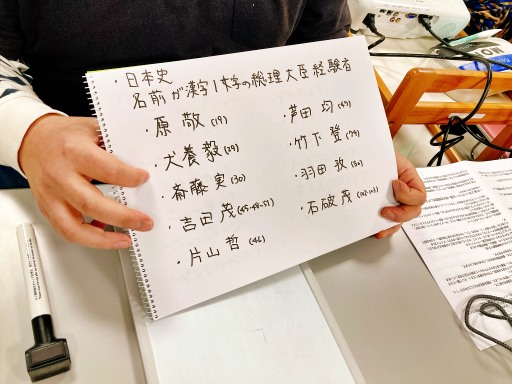 ・日本史
名前が漢字1文字の総理大臣経験者
・原 敬 (19)
・犬養毅(29)
・斎藤実(30)
・吉田 茂(45・48-51)
・片山 哲 (46)
・芦田 均(47)
・竹下 登(74)
・羽田 孜(80)
・石破 茂(102・103)